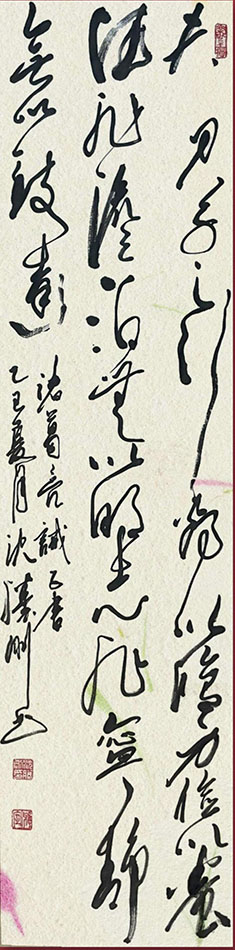 夫君子之行静以修身俭以養
德非澹泊無以明志非寧静
無以致遠
诸葛亮诫子書
乙巳夏月沈 书